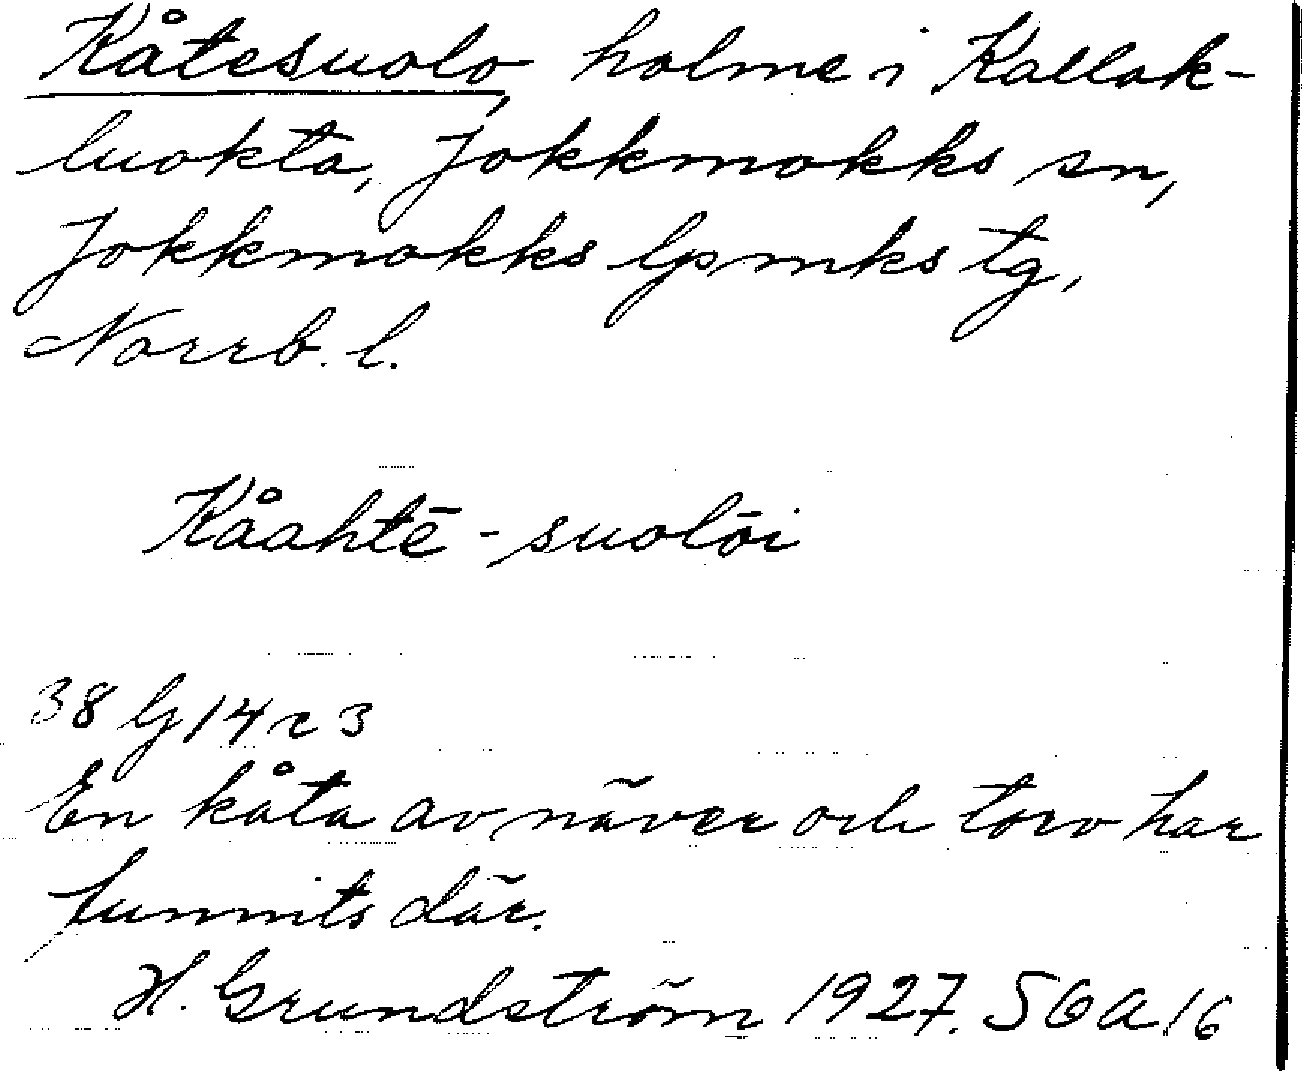 Kåtesuolo, holme i Kallak-
luokta, Jokkmokks sn,
Jokkmokks lpmks tg,
Norrb. l.
Kåahtē-suolōi
38 G 14 r 3
En kåta av näver och torv har
funnits där.
H. Grundström 1927. SOA 16